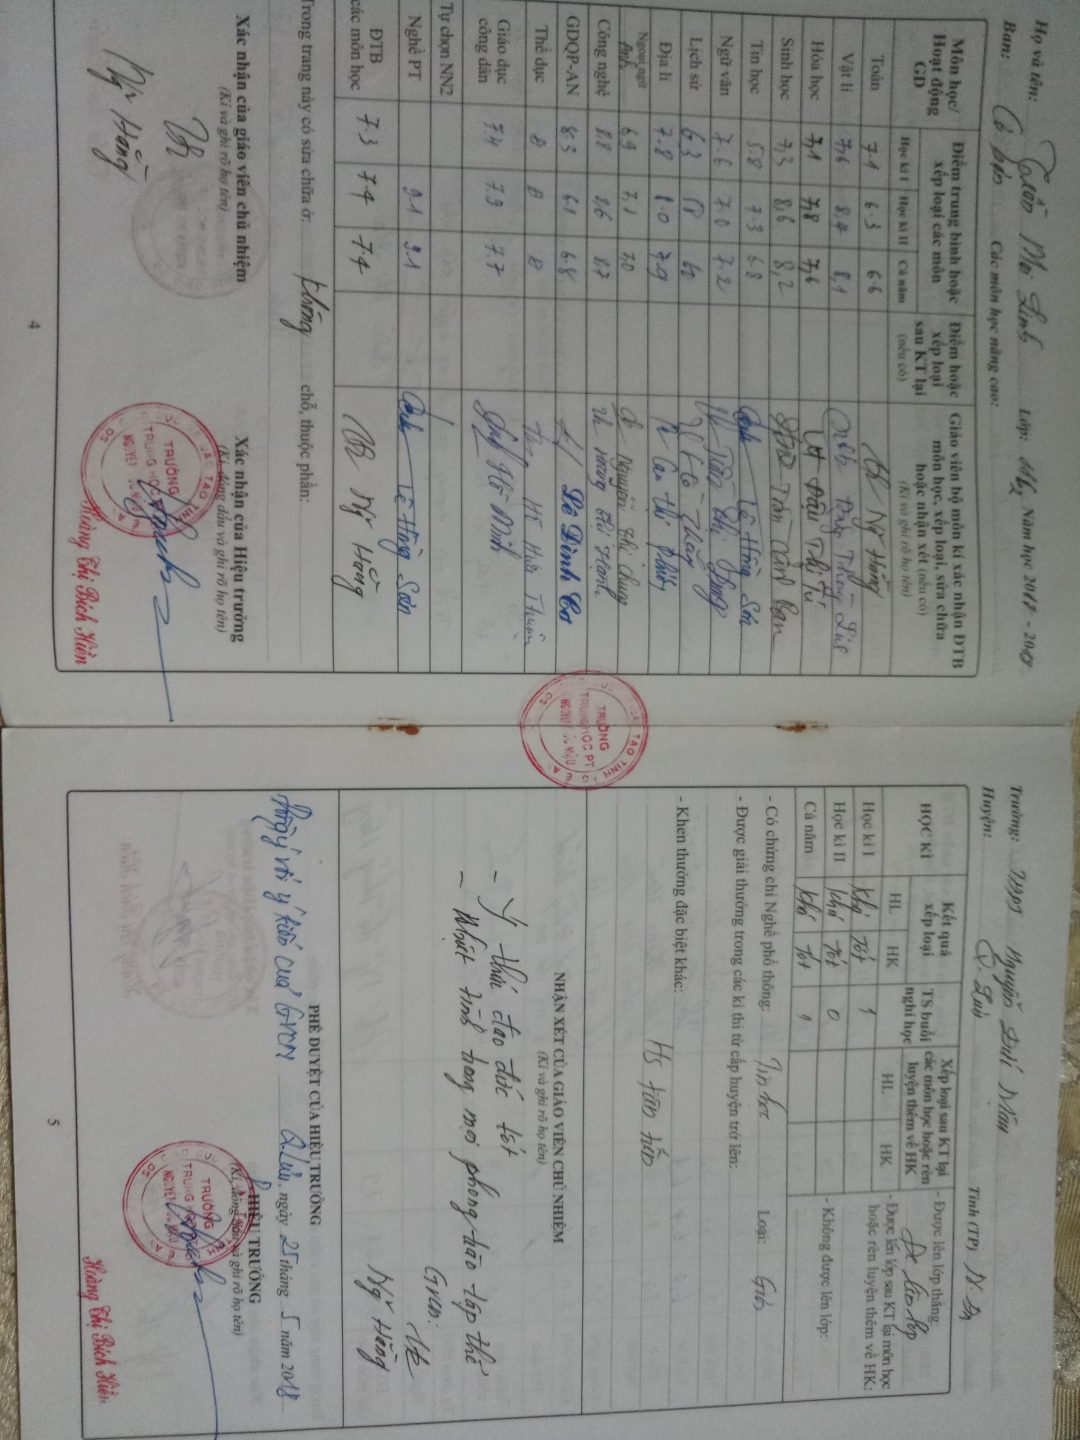 Họ và tên: Trần Mai Linh Lớp: Năm học 2017 - 2018
Ban: Cơ bản Các môn học nâng cao:
Môn học/ Hoạt động GD
Điểm trung bình hoặc xếp loại các môn
Học kì I Học kì II Cả năm
Điểm hoặc xếp loại sau KT lại (nếu có)
Giáo viên bộ môn kí xác nhận ĐTB môn học, xếp loại, sửa chữa hoặc nhận xét (nếu có)
(Kí và ghi rõ họ tên)
Toán 7.1 6.3 6.6 Mỹ Hằng
Vật lí 7,6 8,4 8,1
Hóa học 7,1 7,8 7,6 Đậu Thị Tú
Sinh học 7,3 8,6 8,2 Trần
Tin học 5.8 7.3 6.8 Lê Hồng Sơn
Ngữ văn 7.6 7.0 7.2
Lịch sử 6.3
Địa lí 7.8 8.0 7.9 Cao Thị
Ngoại ngữ Anh 6,9 7,1 7,0 Nguyễn Thị Chung
Công nghệ 8.8 8.6 8.7
GDQP-AN 8.3 6.1 6.8 Lê Đình Cơ
Thể dục Đ Đ Đ
Giáo dục công dân 7.4 7.9 7.7
Tự chọn NN2
Nghề PT 9.1 9.1 Lê Hồng Sơn
ĐTB các môn học 7.3 7.4 7.4 Mỹ Hằng
Trong trang này có sửa chữa ở: không chỗ, thuộc phần:
Xác nhận của giáo viên chủ nhiệm
(Kí và ghi rõ họ tên)
Mỹ Hằng
Xác nhận của Hiệu trưởng
(Kí, đóng dấu và ghi rõ họ tên)
TRƯỜNG
Hoàng Thị Bích Hiền
4
TRƯỜNG
TRUNG HỌC PT
Trường: THPT Nguyễn Đức Mậu Tỉnh (TP) N. An
Huyện: Q. Lưu
HỌC KÌ
Kết quả xếp loại
HL HK
TS buổi nghỉ học
Xếp loại sau KT lại các môn học hoặc rèn luyện thêm về HK
HL HK
Học kì I Khá Tốt 1
Học kì II Khá Tốt 0
Cả năm Khá Tốt 1
- Được lên lớp thẳng:
Được lên lớp
- Được lên lớp sau KT lại môn học hoặc rèn luyện thêm về HK:
- Không được lên lớp:
- Có chứng chỉ Nghề phổ thông: Tin học Loại: Giỏi
- Được giải thưởng trong các kì thi từ cấp huyện trở lên:
- Khen thưởng đặc biệt khác:
NHẬN XÉT CỦA GIÁO VIÊN CHỦ NHIỆM
(Kí và ghi rõ họ tên)
- Ý thức đạo đức tốt
- Nhiệt tình trong mọi phong trào tập thể
GVCN:
Mỹ Hằng
PHÊ DUYỆT CỦA HIỆU TRƯỞNG
Nhất trí với ý kiến của GVCN
Q.Lưu, ngày 25 tháng 5 năm 2018
HIỆU TRƯỞNG
(Kí, đóng dấu và ghi rõ họ tên)
TRƯỜNG
Hoàng Thị Bích Hiền
5